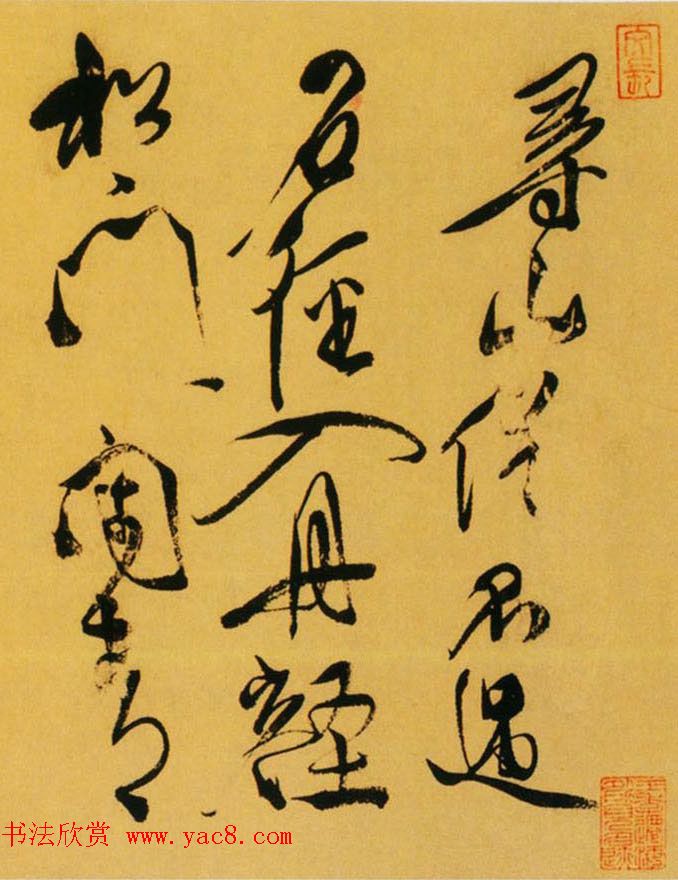 尋山僧不遇
石徑入丹壑
松門閉青
书法欣赏 www.yac8.com